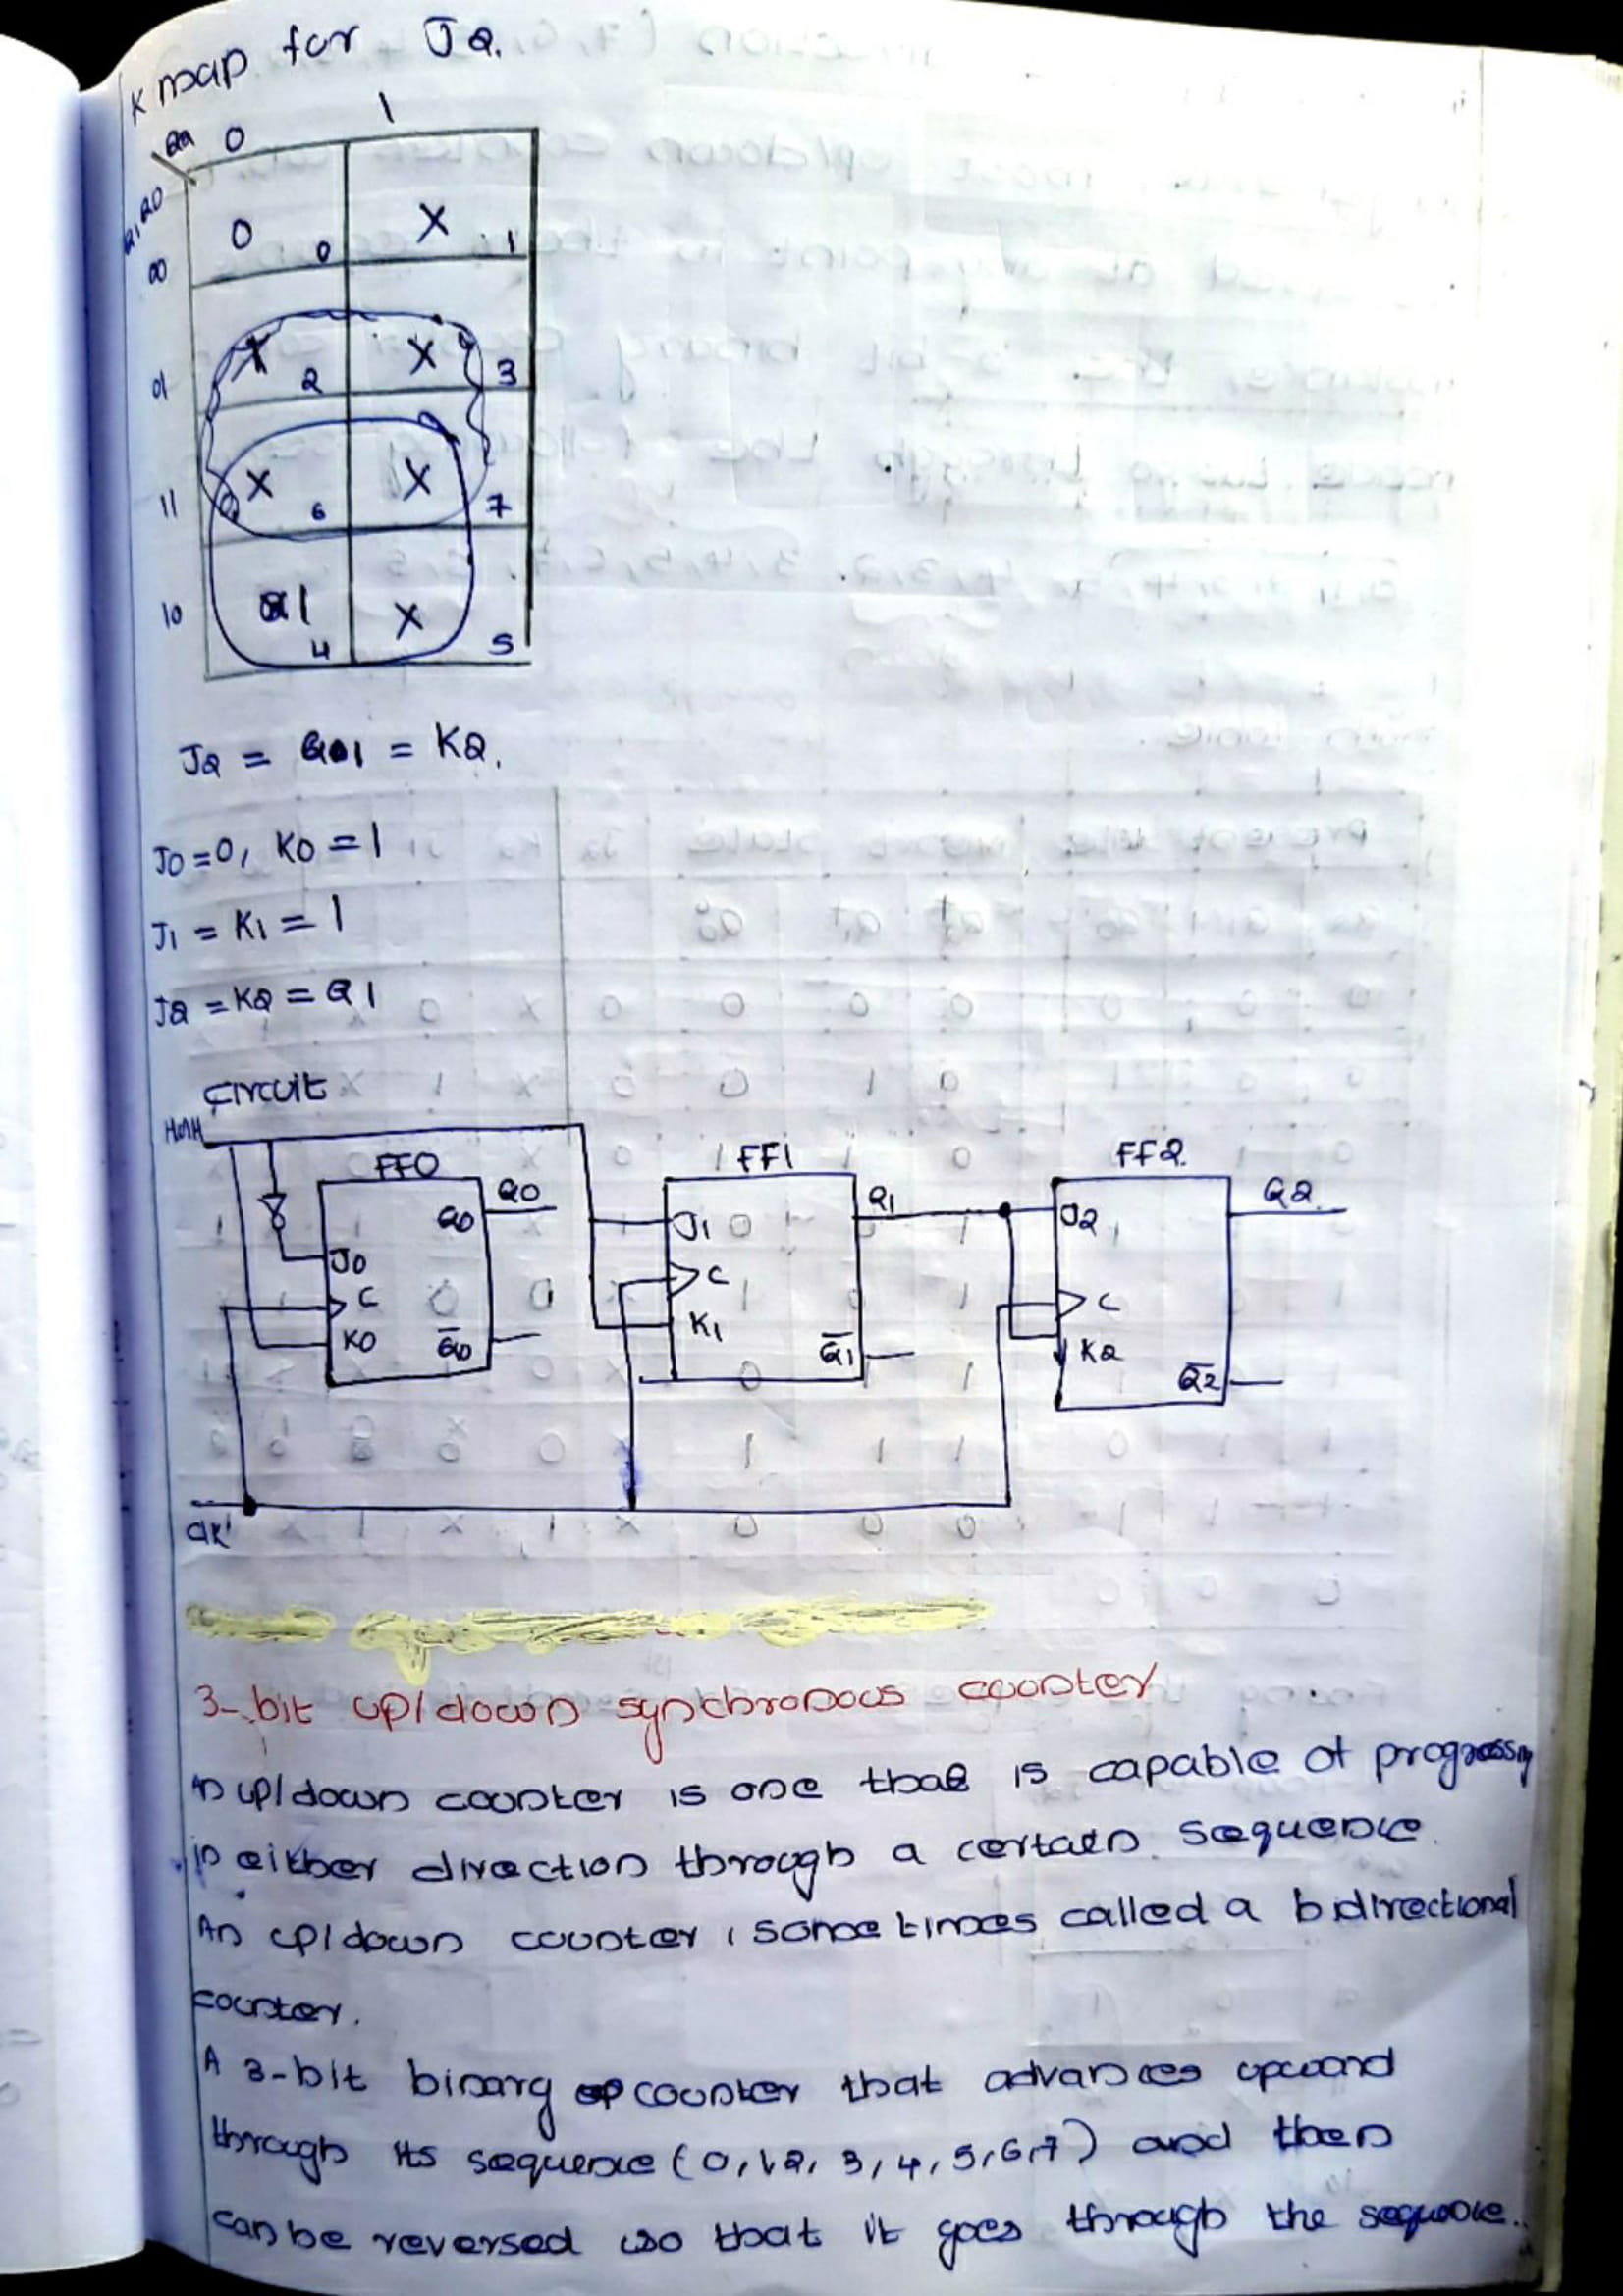 K map for J2.
Q2 0 1
Q1Q0
00 0 0 X 1
01 X 2 X 3
11 X 6 X 7
10 1 4 X 5
J2 = Q1 = K2.
J0 = 0, K0 = 1
J1 = K1 = 1
J2 = K2 = Q1
Circuit
HIGH
FF0 FF1 FF2
Q0 Q0 J1 Q1 J2 Q2
J0
C C C
K0 Q̅0 K1 Q̅1 K2 Q̅2
CLK
3-bit up/down synchronous counter
An up/down counter is one that is capable of progressing
in either direction through a certain sequence.
An up/down counter, some times called a bidirectional
counter.
A 3-bit binary counter that advances upward
through its sequence (0,1,2,3,4,5,6,7) and then
can be reversed so that it goes through the sequence..